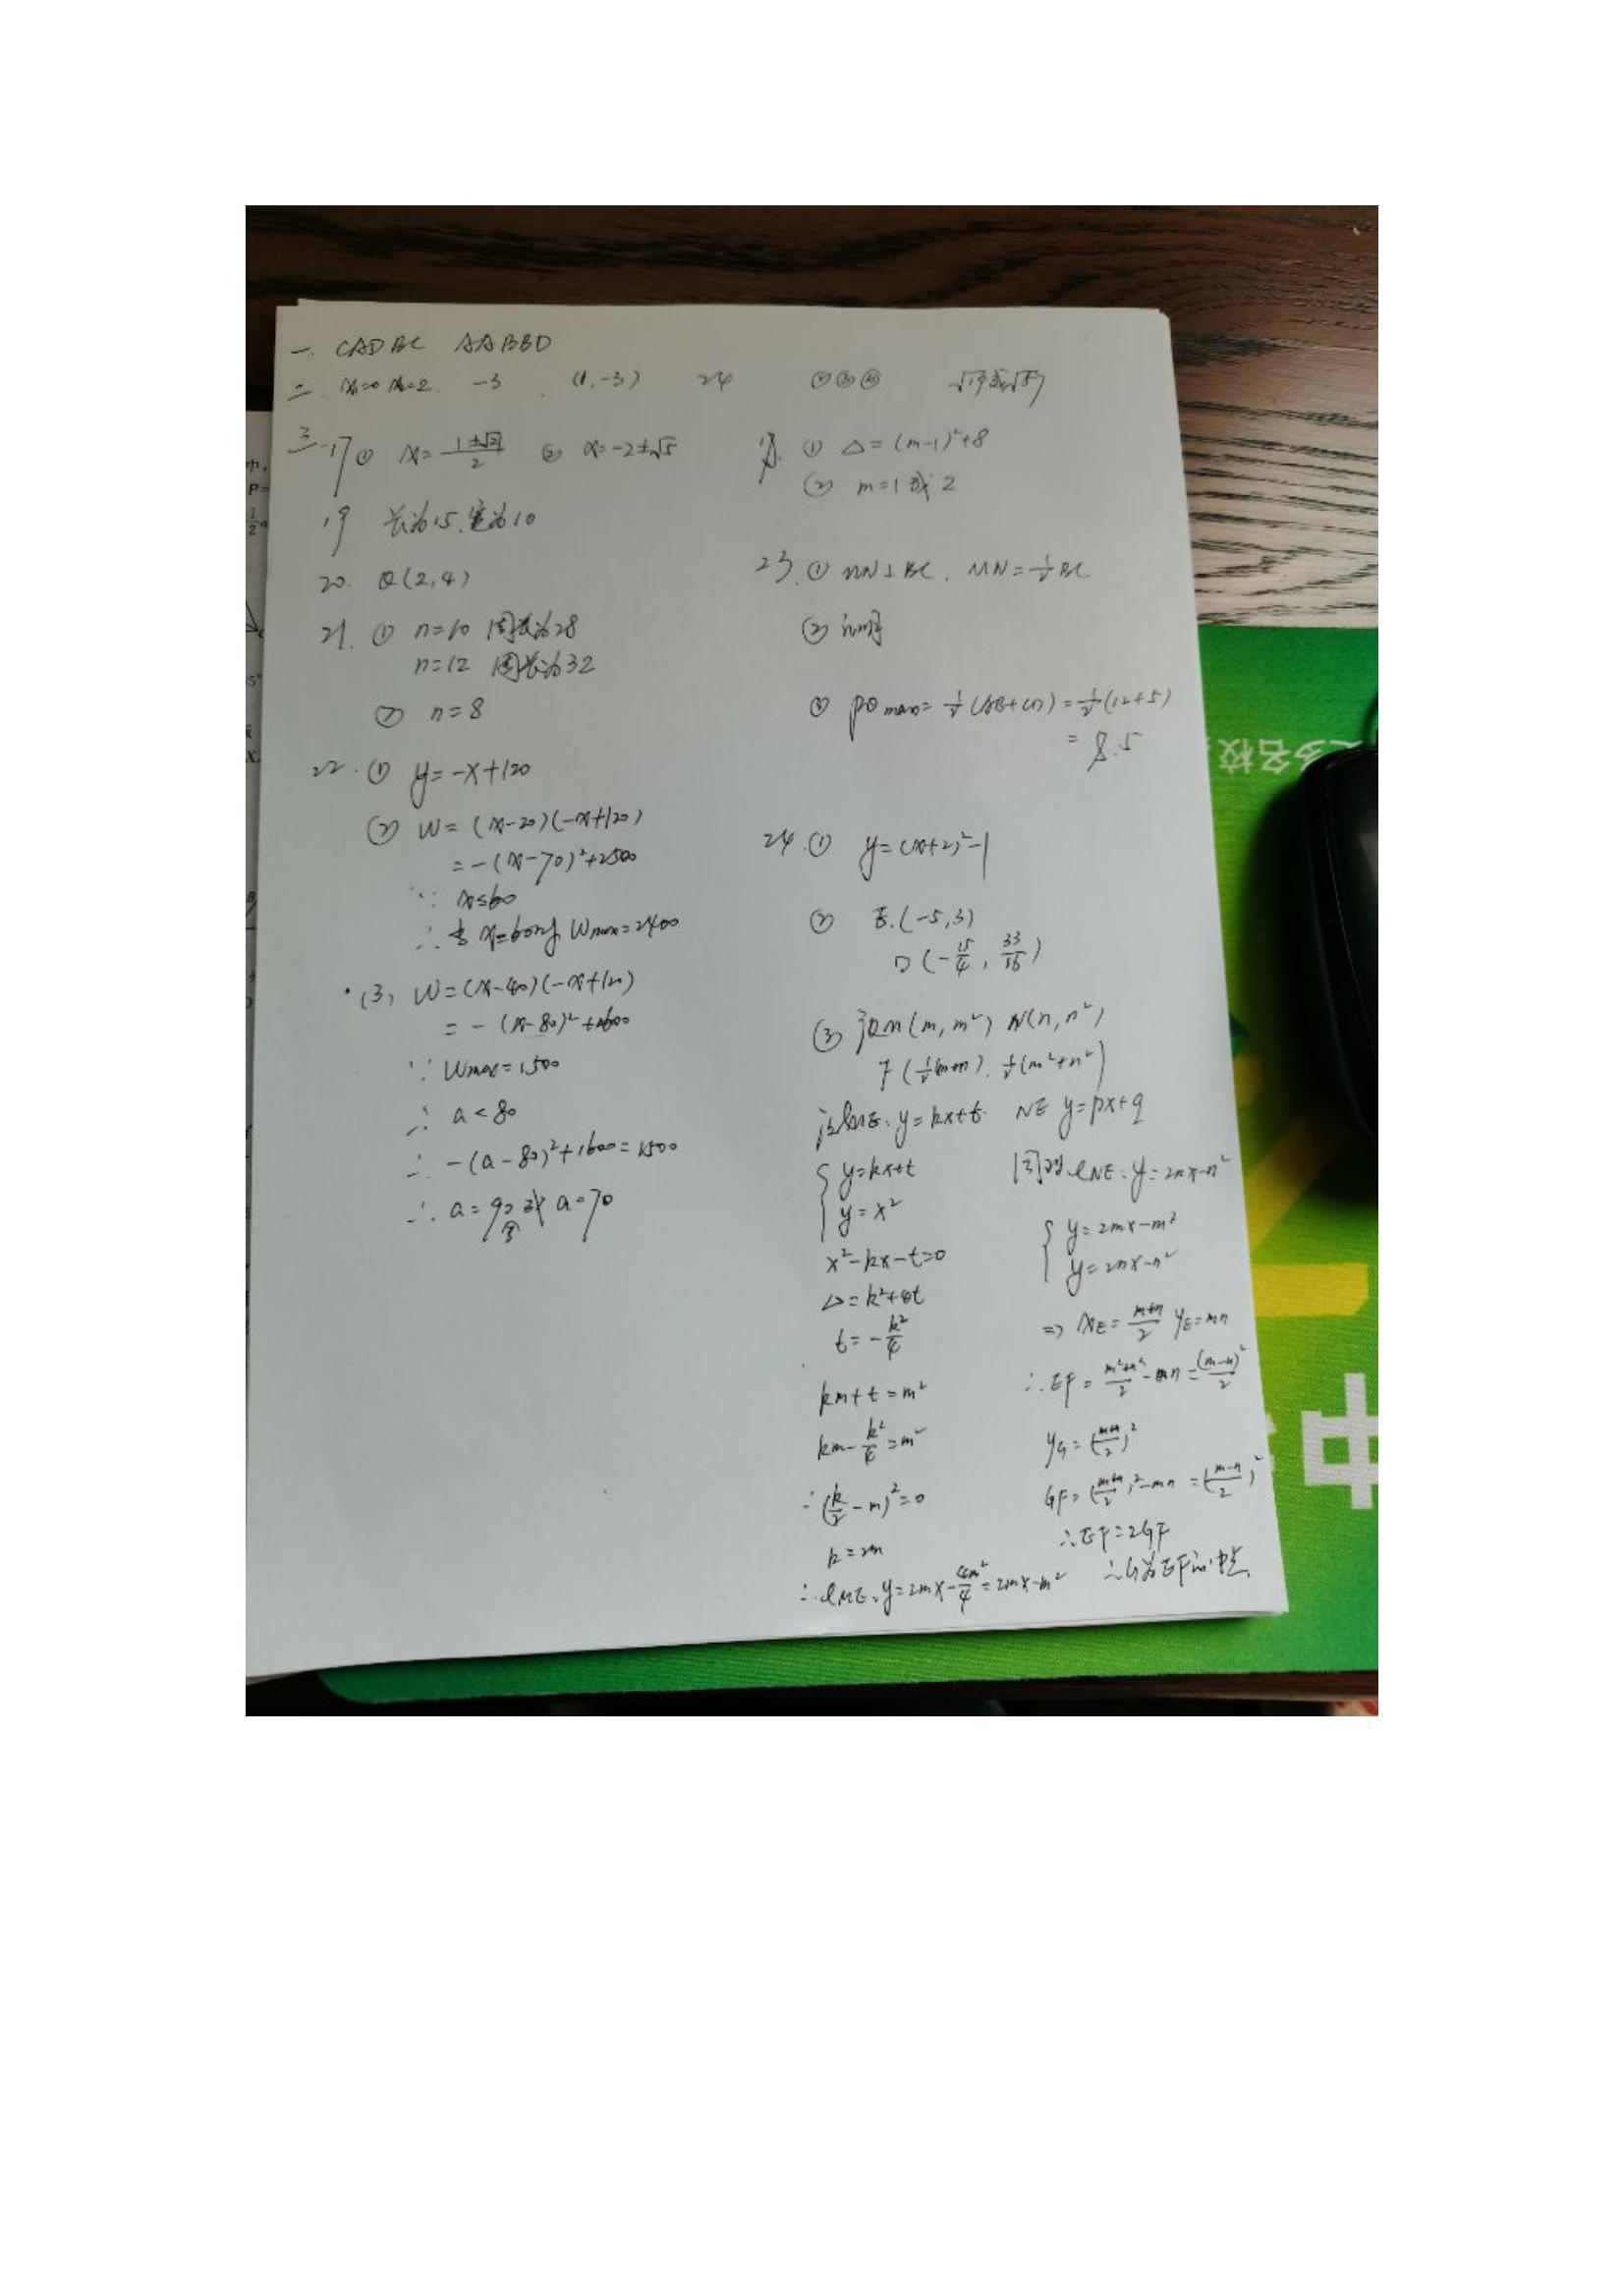 一. CADBC AABBD
二. x₁=0 x₂=2. -3 (1,-3) 24 ②③④ √19或√59
三.17① x=(1±√21)/2 ② x=-2±√5
19 长为15,宽为10
20. Q(2,4)
21. ① n=10 周长为28
n=12 周长为32
② n=8
22.① y=-x+120
② W=(x-20)(-x+120)
=-(x-70)²+2500
∵ x≤60
∴当x=60时 Wmax=2400
(3) W=(x-40)(-x+120)
=-(x-80)²+1600
∵ Wmax=1500
∴ a<80
∴ -(a-80)²+1600=1500
∴ a=90或a=70
舍
18. ① △=(m-1)²+8
② m=1或2
23.① MN⊥BC. MN=½BC
② 证明
③ PQmax=½(AB+CD)=½(12+5)
=8.5
24.① y=(x+2)²-1
② E.(-5,3)
D(-15/4, 33/16)
③ 设M(m,m²) N(n,n²)
F(½(m+n), ½(m²+n²))
设lME:y=kx+t NE y=px+q
{ y=kx+t
y=x²
x²-kx-t=0
△=k²+4t
t=-k²/4
km+t=m²
km-k²/4=m²
∴(k/2-m)²=0
k=2m
∴lME:y=2mx-4m²/4=2mx-m²
同理lNE:y=2nx-n²
{ y=2mx-m²
y=2nx-n²
⇒ xE=(m+n)/2 yE=mn
∴EF=(m²+n²)/2-mn=(m-n)²/2
yG=((m+n)/2)²
GF=((m+n)/2)²-mn=((m-n)/2)²
∴EF=2GF
∴G为EF的中点
中,
P=
多名校
中